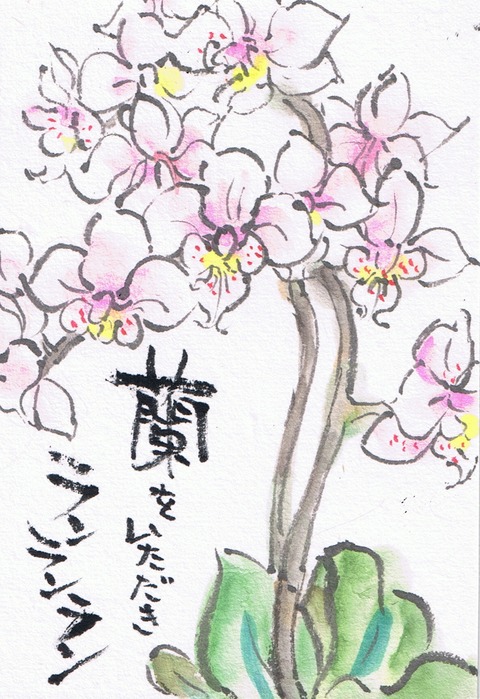 蘭をいただき
ランランラン